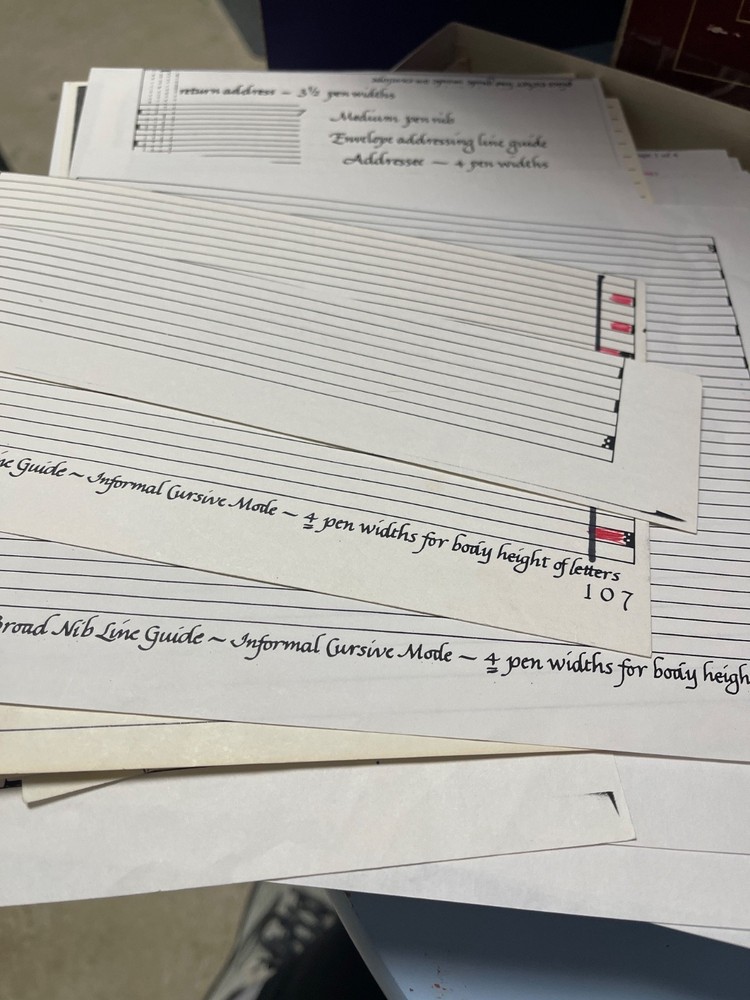 return address ~ 3½ pen widths
Medium pen nib
Envelope addressing line guide
Addressee ~ 4 pen widths
Guide ~ Informal Cursive Mode ~ 4 pen widths for body height of letters
107
Broad Nib Line Guide ~ Informal Cursive Mode ~ 4 pen widths for body heigh